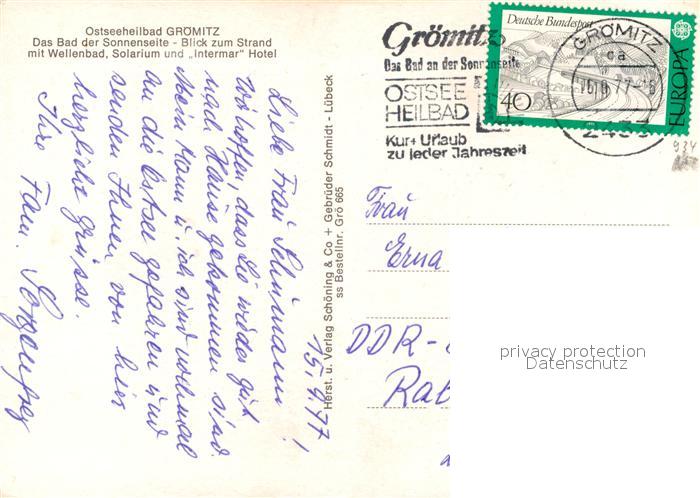 Ostseeheilbad GRÖMITZ
Das Bad der Sonnenseite - Blick zum Strand
mit Wellenbad, Solarium und „Intermar" Hotel
Grömitz
Das Bad an der Sonnenseite
OSTSEE
HEILBAD
Kur + Urlaub
zu jeder Jahreszeit
Deutsche Bundespost
40
EUROPA
GRÖMITZ
2433
934
Herst. u. Verlag Schöning & Co + Gebrüder Schmidt - Lübeck
ss Bestellnr. Grö 665
15.9.77
Liebe Frau Schumann!
Wir hoffen, dass Sie wieder gut
nach Hause gekommen sind.
Mein Mann u. ich sind nochmal
an die Ostsee gefahren und
senden Ihnen von hier
herzliche Grüsse.
Ihre Fam.
Frau
Erna
DDR-
privacy protection
Datenschutz